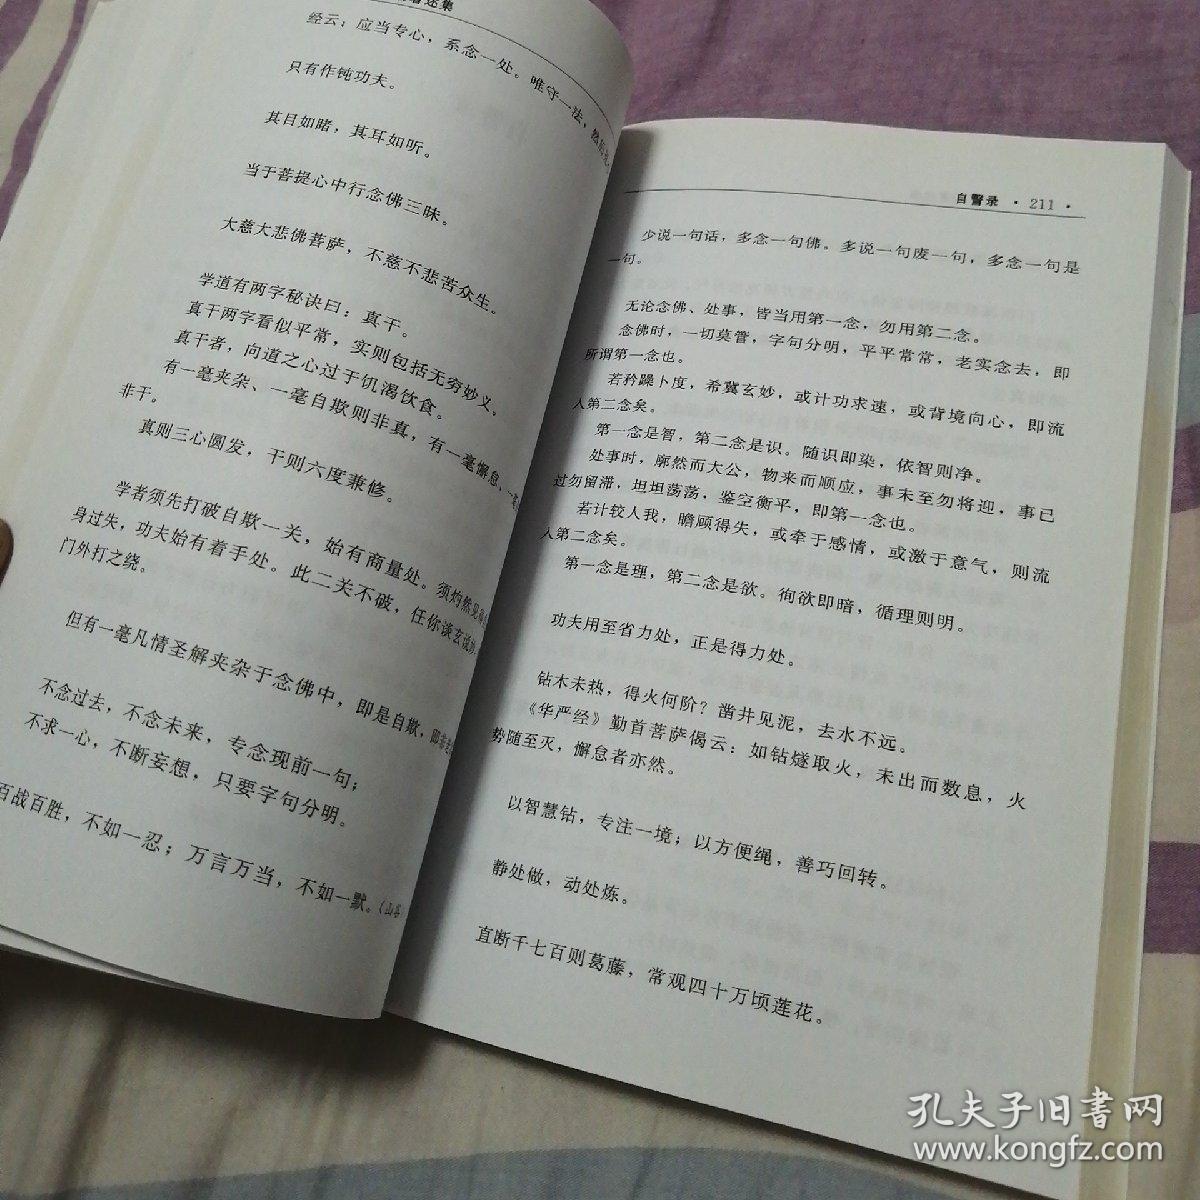 著述集
经云：应当专心，系念一处。唯守一法，然后
只有作钝功夫。
其目如睹，其耳如听。
当于菩提心中行念佛三昧。
大慈大悲佛菩萨，不慈不悲苦众生。
学道有两字秘诀曰：真干。
真干两字看似平常，实则包括无穷妙义。
真干者，向道之心过于饥渴饮食。
有一毫夹杂、一毫自欺则非真，有一毫懈怠、一毫
非干。
真则三心圆发，干则六度兼修。
学者须先打破自欺一关，始有商量处。须灼然见得
身过失，功夫始有着手处。此二关不破，任你谈玄说妙
门外打之绕。
但有一毫凡情圣解夹杂于念佛中，即是自欺，即非
不念过去，不念未来，专念现前一句；
不求一心，不断妄想，只要字句分明。
百战百胜，不如一忍；万言万当，不如一默。（山谷
自警录 · 211 ·
少说一句话，多念一句佛。多说一句废一句，多念一句是
一句。
无论念佛、处事，皆当用第一念，勿用第二念。
念佛时，一切莫管，字句分明，平平常常，老实念去，即
所谓第一念也。
若矜躁卜度，希冀玄妙，或计功求速，或背境向心，即流
入第二念矣。
第一念是智，第二念是识。随识即染，依智则净。
处事时，廓然而大公，物来而顺应，事未至勿将迎，事已
过勿留滞，坦坦荡荡，鉴空衡平，即第一念也。
若计较人我，瞻顾得失，或牵于感情，或激于意气，则流
入第二念矣。
第一念是理，第二念是欲。徇欲即暗，循理则明。
功夫用至省力处，正是得力处。
钻木未热，得火何阶？凿井见泥，去水不远。
《华严经》勤首菩萨偈云：如钻燧取火，未出而数息，火
势随至灭，懈怠者亦然。
以智慧钻，专注一境；以方便绳，善巧回转。
静处做，动处炼。
直断千七百则葛藤，常观四十万顷莲花。
孔夫子旧书网
www.kongfz.com